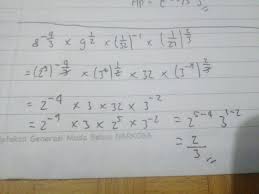 8^{-4/3} × 9^{1/2} × (1/32)^{-1} × (1/27)^{2/3}
= (2^3)^{-4/3} × (3^2)^{1/2} × 32 × (3^{-3})^{2/3}
= 2^{-4} × 3 × 32 × 3^{-2}
= 2^{-4} × 3 × 2^5 × 3^{-2} = 2^{5-4} 3^{1-2}
= 2/3 //
Generasi Muda Bebas NARKOBA